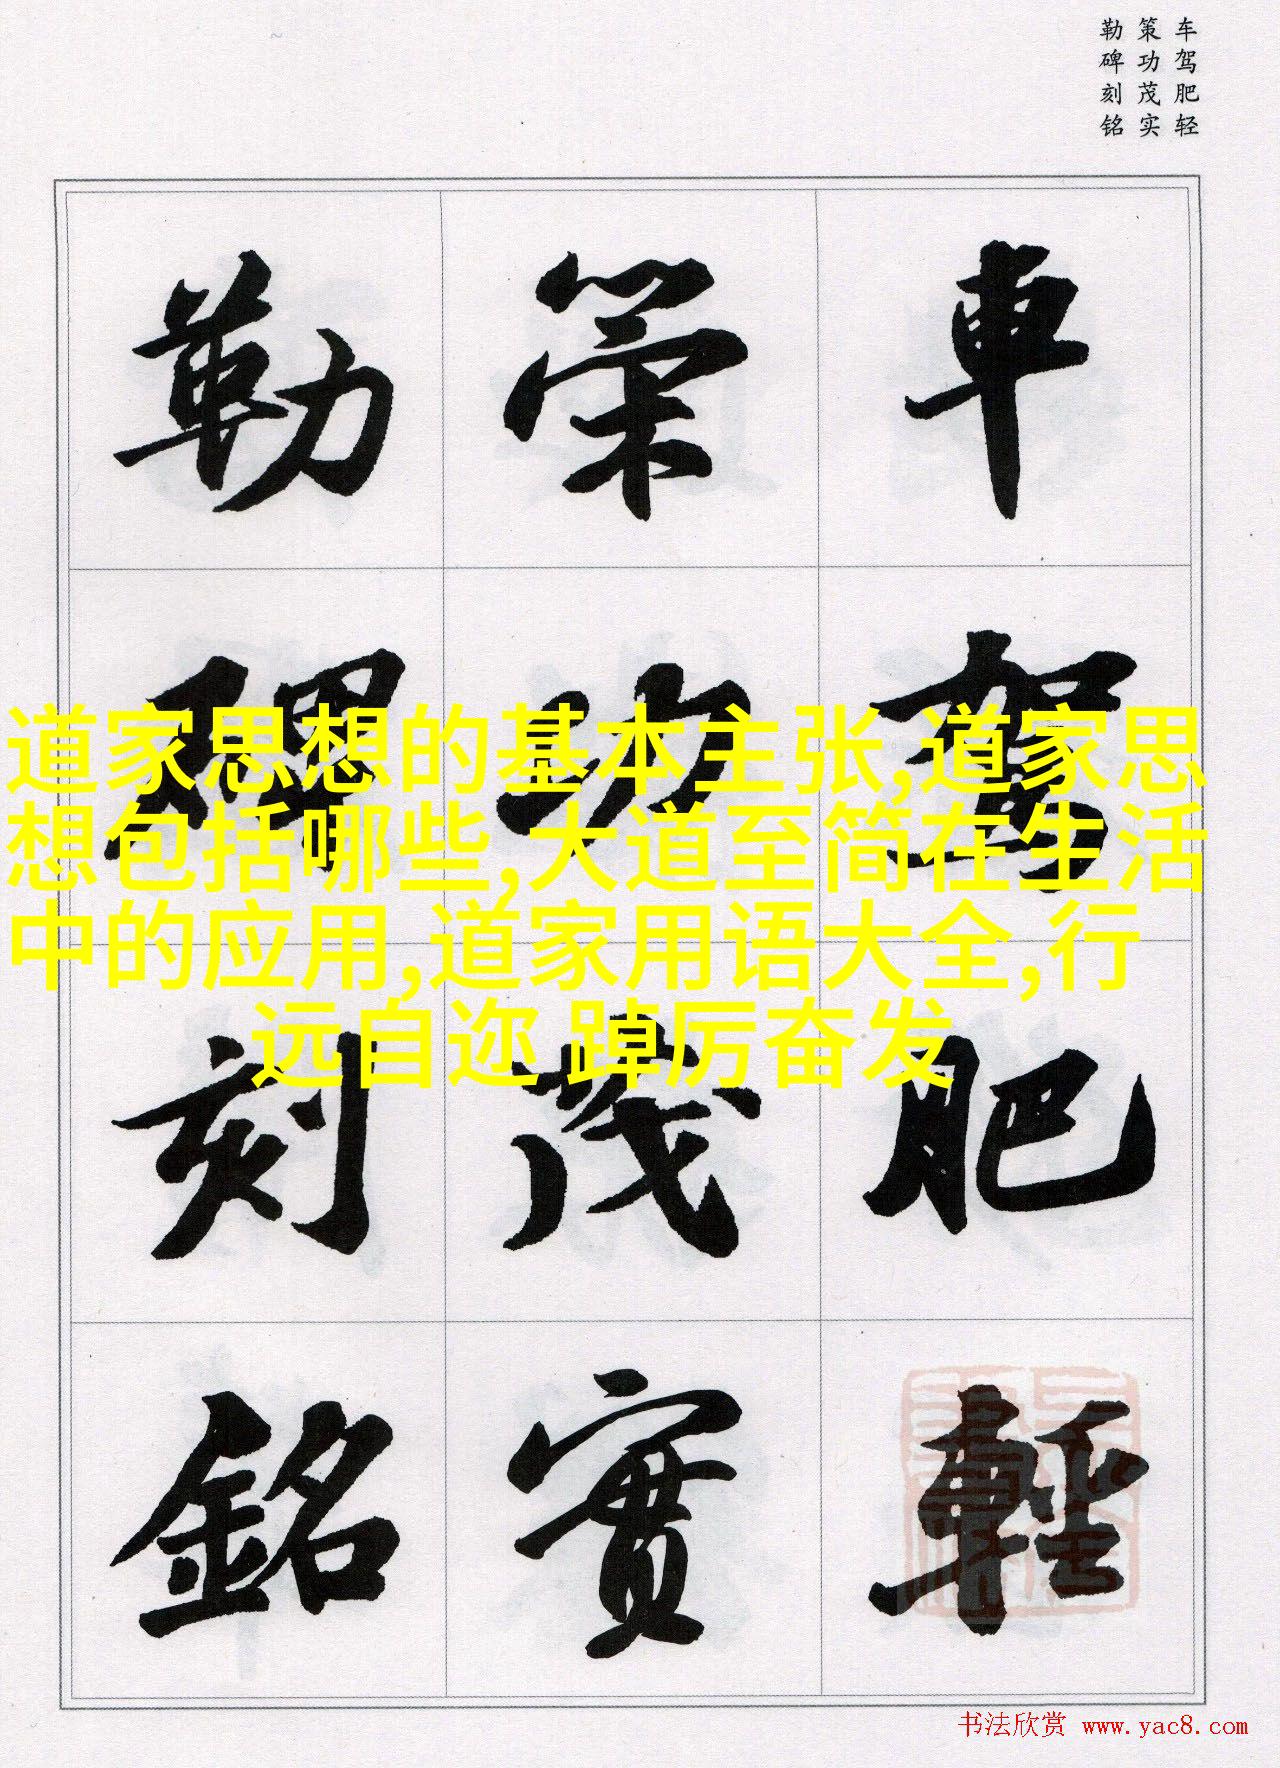 车驾肥轻
策功茂实
勒碑刻铭
車駕肥輕
策功茂實
勒碑刻銘
道家思想的基本主张,道家思
想包括哪些,大道至简在生活
中的应用,道家用语大全,行
远自迩 踔厉奋发
书法欣赏 www.yac8.com